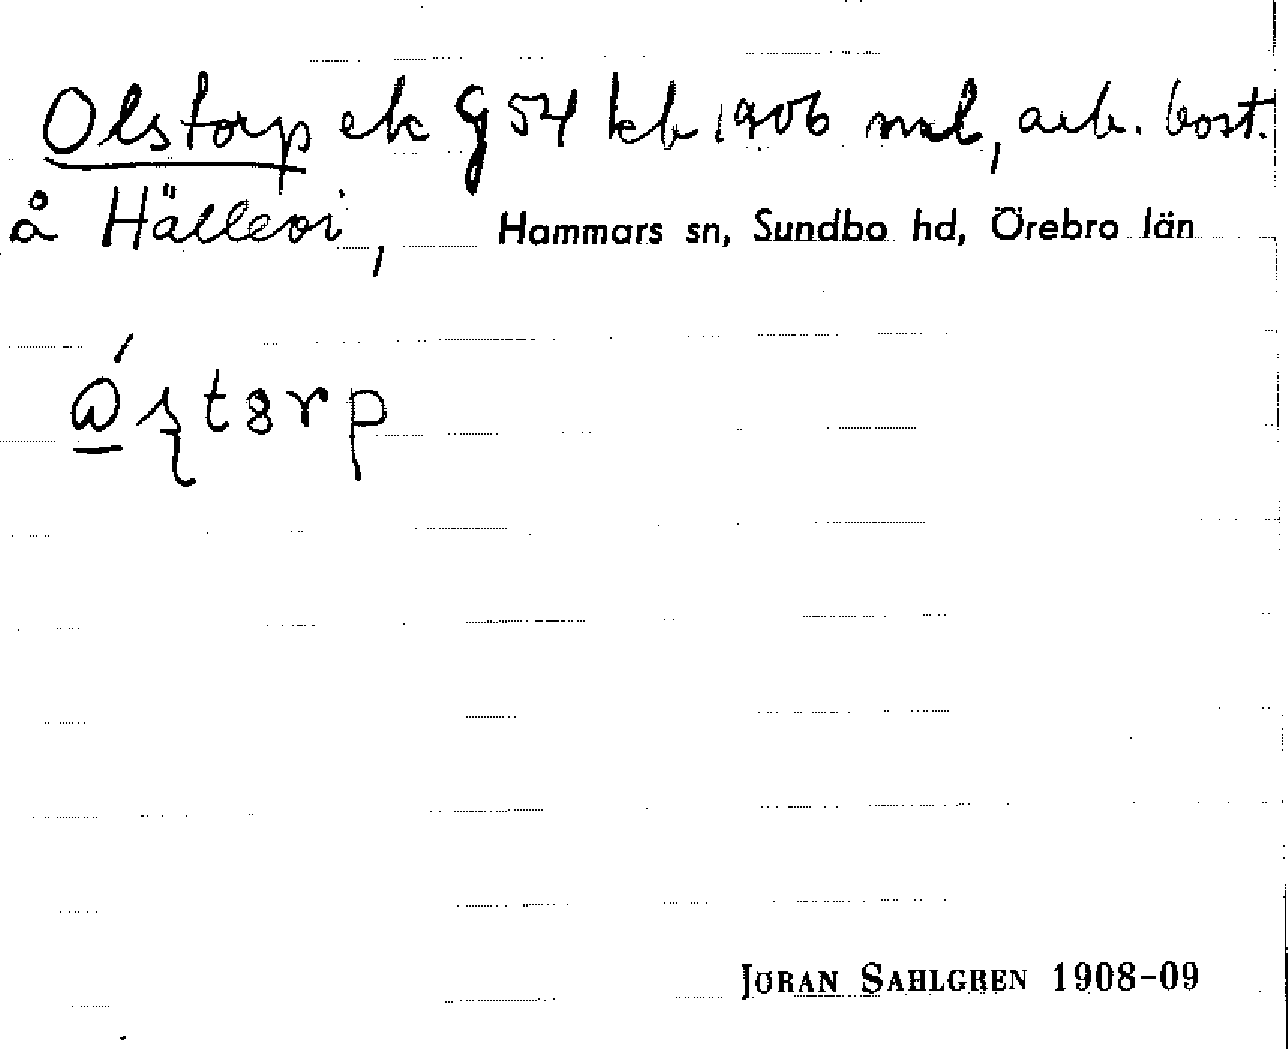 Olstorp ek G 54 kb 1906 nml, arb. bost.
å Hälleoi, Hammars sn, Sundbo hd, Örebro län
JÖRAN SAHLGREN 1908-09